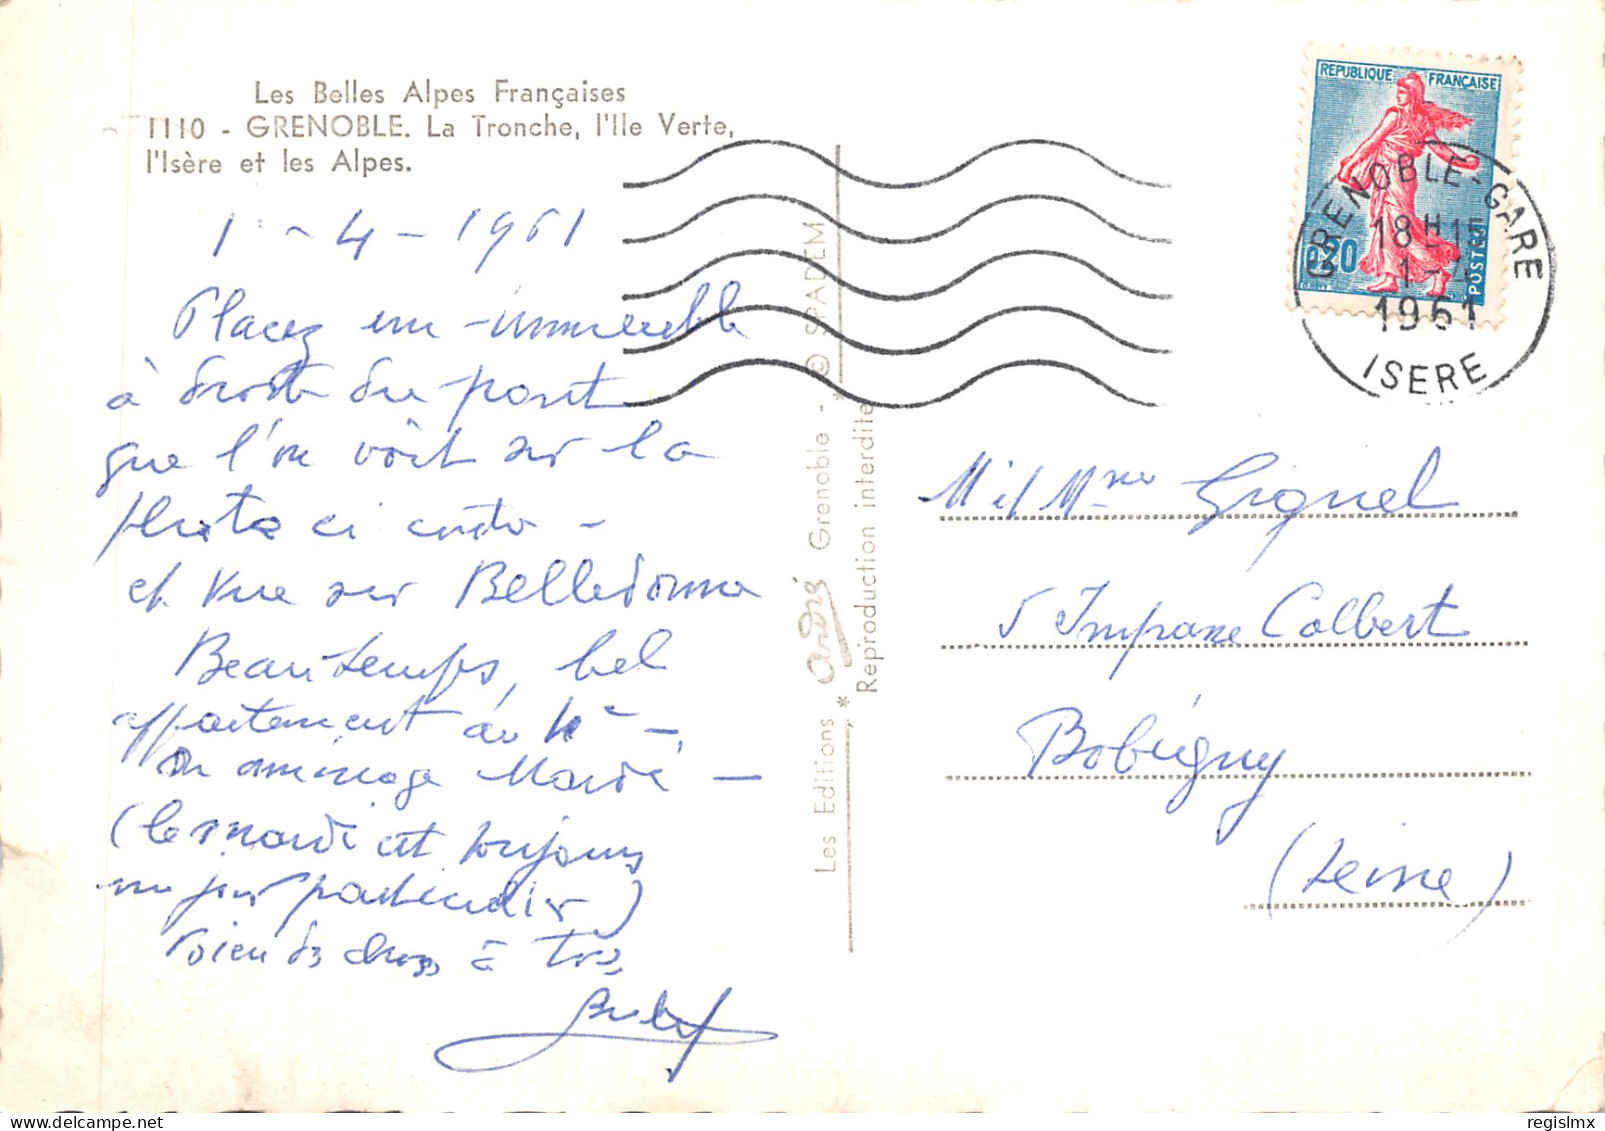 Les Belles Alpes Françaises
1110 - GRENOBLE. La Tronche, l'Ile Verte,
l'Isère et les Alpes.
1 - 4 - 1961
Placez un immeuble
à droite du pont
que l'on voit sur la
photo ci contre -
et vue sur Belledonne
Beau temps, bel
appartement au
On aménage Mardi -
(le mardi est toujours
un jour particulier)
Bien des choses à tous
Les Editions andré Grenoble - © SPADEM
* Reproduction interdite *
REPUBLIQUE FRANÇAISE
0,20
POSTES
GRENOBLE-GARE
18H-15
1-4
1961
ISERE
M et Mme Gignel
5 Impasse Colbert
Bobigny
(Seine)
www.delcampe.net
regislmx